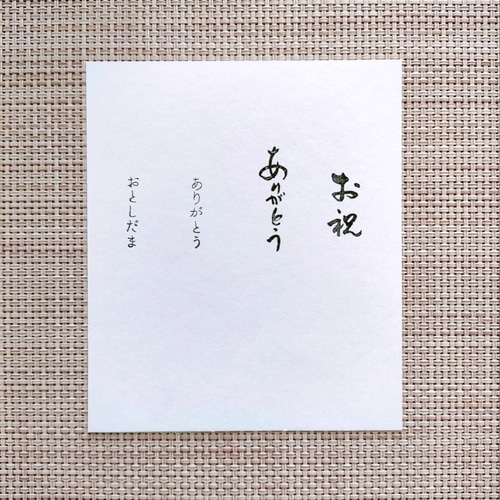 お祝
ありがとう
ありがとう
おとしだま